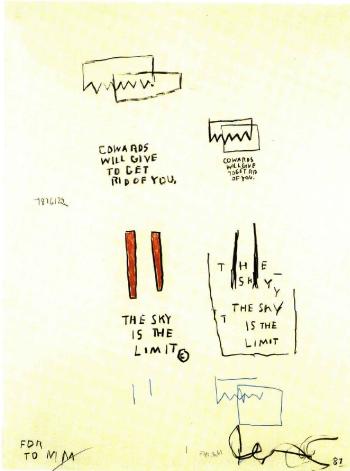 COWARDS
WILL GIVE
TO GET
RID OF YOU.
COWARDS
WILL GIVE
TO GET RID
OF YOU.
T H E
S K Y
THE SKY
IS THE
LIMIT ©
T THE SKY
IS THE
LIMIT
FOR
TO M M
87